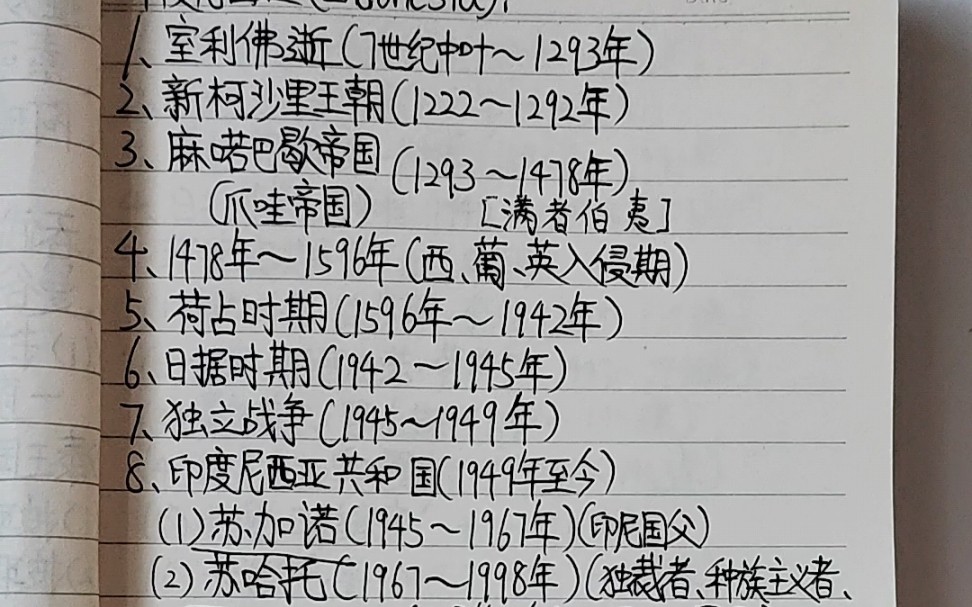 1、室利佛逝(7世纪中叶～1293年)
2、新柯沙里王朝(1222～1292年)
3、麻喏巴歇帝国(1293～1478年)
(爪哇帝国) [满者伯夷]
4、1478年～1596年(西、葡、英入侵期)
5、荷占时期(1596年～1942年)
6、日据时期(1942～1945年)
7、独立战争(1945～1949年)
8、印度尼西亚共和国(1949年至今)
(1)苏加诺(1945～1967年)(印尼国父)
(2)苏哈托(1967～1998年)(独裁者、种族主义者、